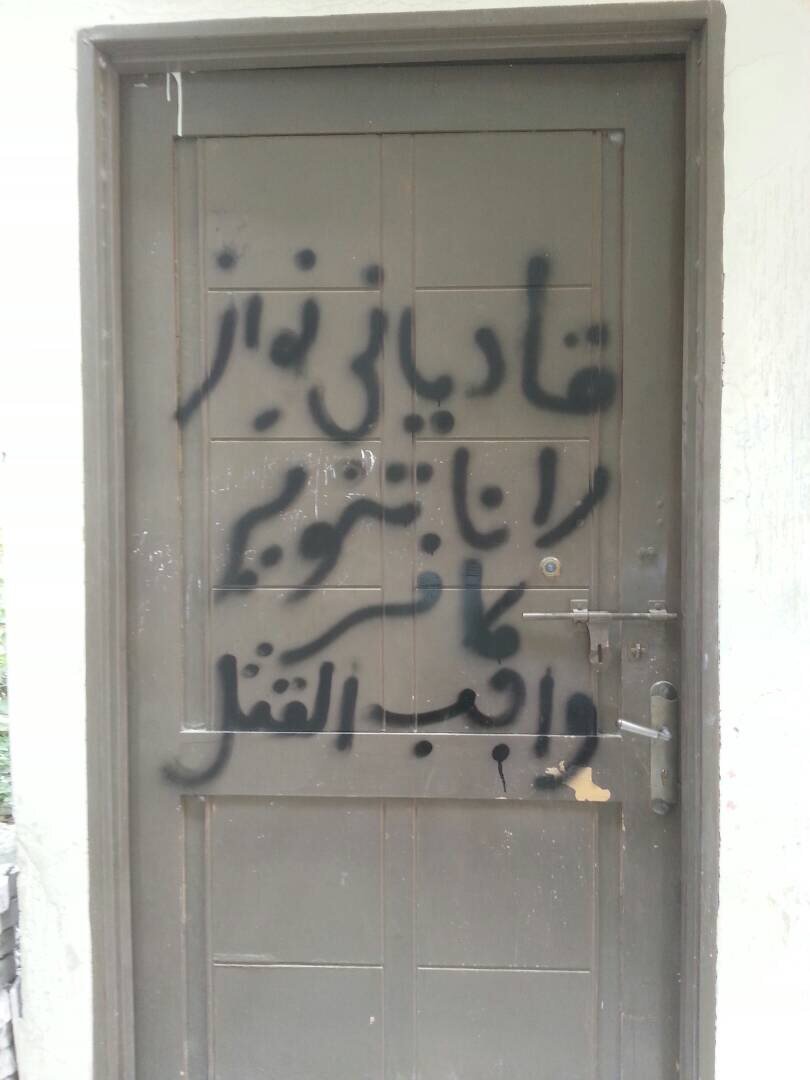 قادیانی نواز
رانا تنویر
کافر
واجب القتل